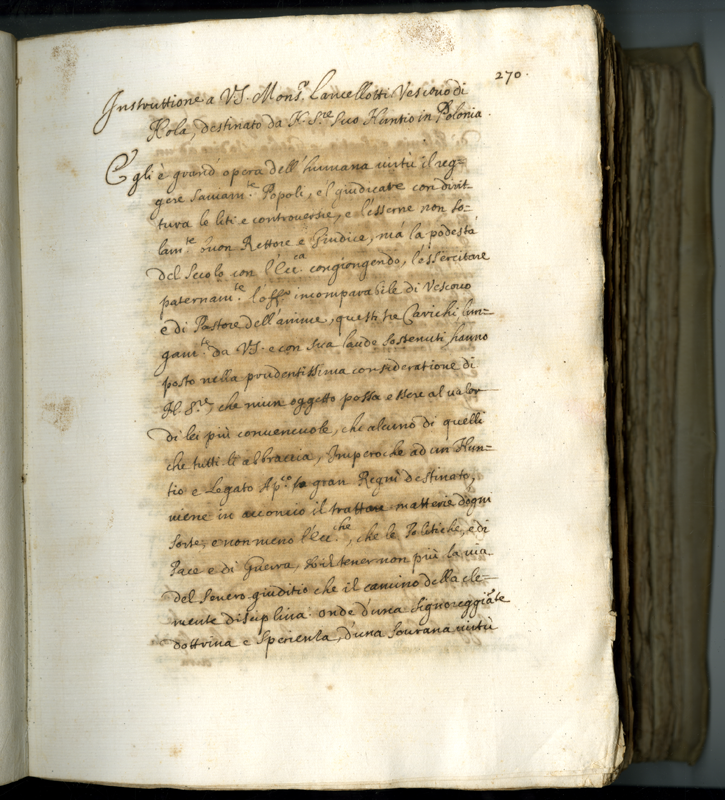 270.
Instruttione a VS. Mons.r Lancellotti Vescovo di
Nola, destinato da N. S.re Suo Nuntio in Polonia.
Egli è grand' opera dell' humana virtù il reg=
gere Saviam.te Popoli, e'l giudicare con dirit=
tura le liti e controversie, e l'esserne non so=
lam.te buon Rettore e Giudice, mà la podestà
del Secolo con l'Ecc.ca congiongendo, l'essercitare
paternam.te l'off.o incomparabile di Vescovo
e di Pastore dell' anime, questi tre Carichi lun=
gam.te da VS. e con sua laude sostenuti hanno
posto nella prudentissima consideratione di
N. S.re, che niun oggetto possa essere al valor
di lei più convenevole, che alcuno di quelli
che tutti li abbraccia, Imperoche ad un Nun=
tio e Legato Ap.co à gran Regni destinato,
viene in acconcio il trattare matterie d'ogni
sorte, e non meno l'Ecc.che, che le Politiche, e di
Pace e di Guerra, et il tener non più la via
del Severo giuditio che il camino della cle=
mente disciplina: onde d'una signoreggiãte
dottrina e sperienza, d'una sourana virtù